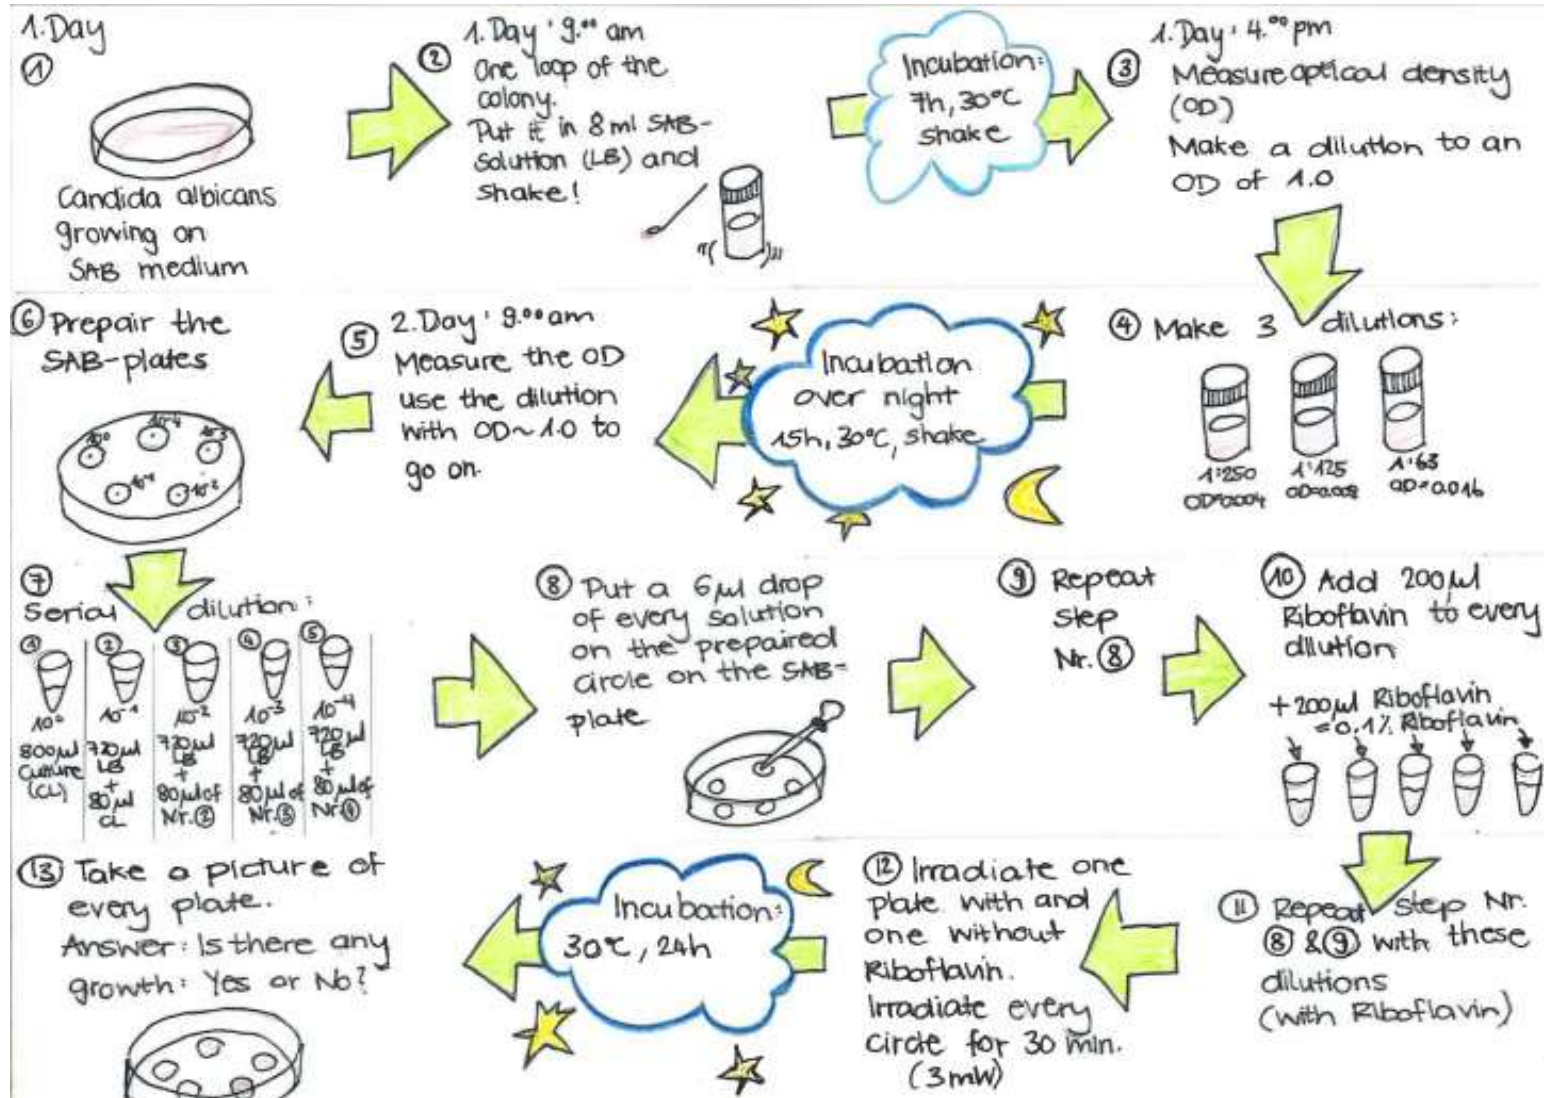 1. Day
①
Candida albicans
growing on
SAB medium
② 1. Day: 9.⁰⁰ am
One loop of the
colony.
Put it in 8 ml SAB-
solution (LB) and
shake!
Incubation:
7h, 30°C
shake
③ 1. Day: 4.⁰⁰ pm
Measure optical density
(OD)
Make a dilution to an
OD of 1.0
④ Make 3 dilutions:
1:250
OD=0.004
1:125
OD=0.008
1:63
OD=0.016
Incubation
over night
15h, 30°C, shake
⑤ 2. Day: 9.⁰⁰ am
Measure the OD
use the dilution
with OD~1.0 to
go on.
⑥ Prepair the
SAB-plates
10⁰
10⁻⁴
10⁻³
10⁻²
⑦
Serial dilution:
①
10⁰
800µl
Culture
(CL)
②
10⁻¹
720µl
LB
+
80µl
CL
③
10⁻²
720µl
LB
+
80µl of
Nr. ②
④
10⁻³
720µl
LB
+
80µl of
Nr. ③
⑤
10⁻⁴
720µl
LB
+
80µl of
Nr. ④
⑧ Put a 6µl drop
of every solution
on the prepaired
circle on the SAB-
plate
⑨ Repeat
step
Nr. ⑧
⑩ Add 200µl
Riboflavin to every
dilution
+ 200µl Riboflavin
= 0.1% Riboflavin
⑪ Repeat step Nr.
⑧ & ⑨ with these
dilutions
(with Riboflavin)
⑫ Irradiate one
plate with and
one without
Riboflavin.
Irradiate every
circle for 30 min.
(3mW)
Incubation:
30°C, 24h
⑬ Take a picture of
every plate.
Answer: Is there any
growth: Yes or No?